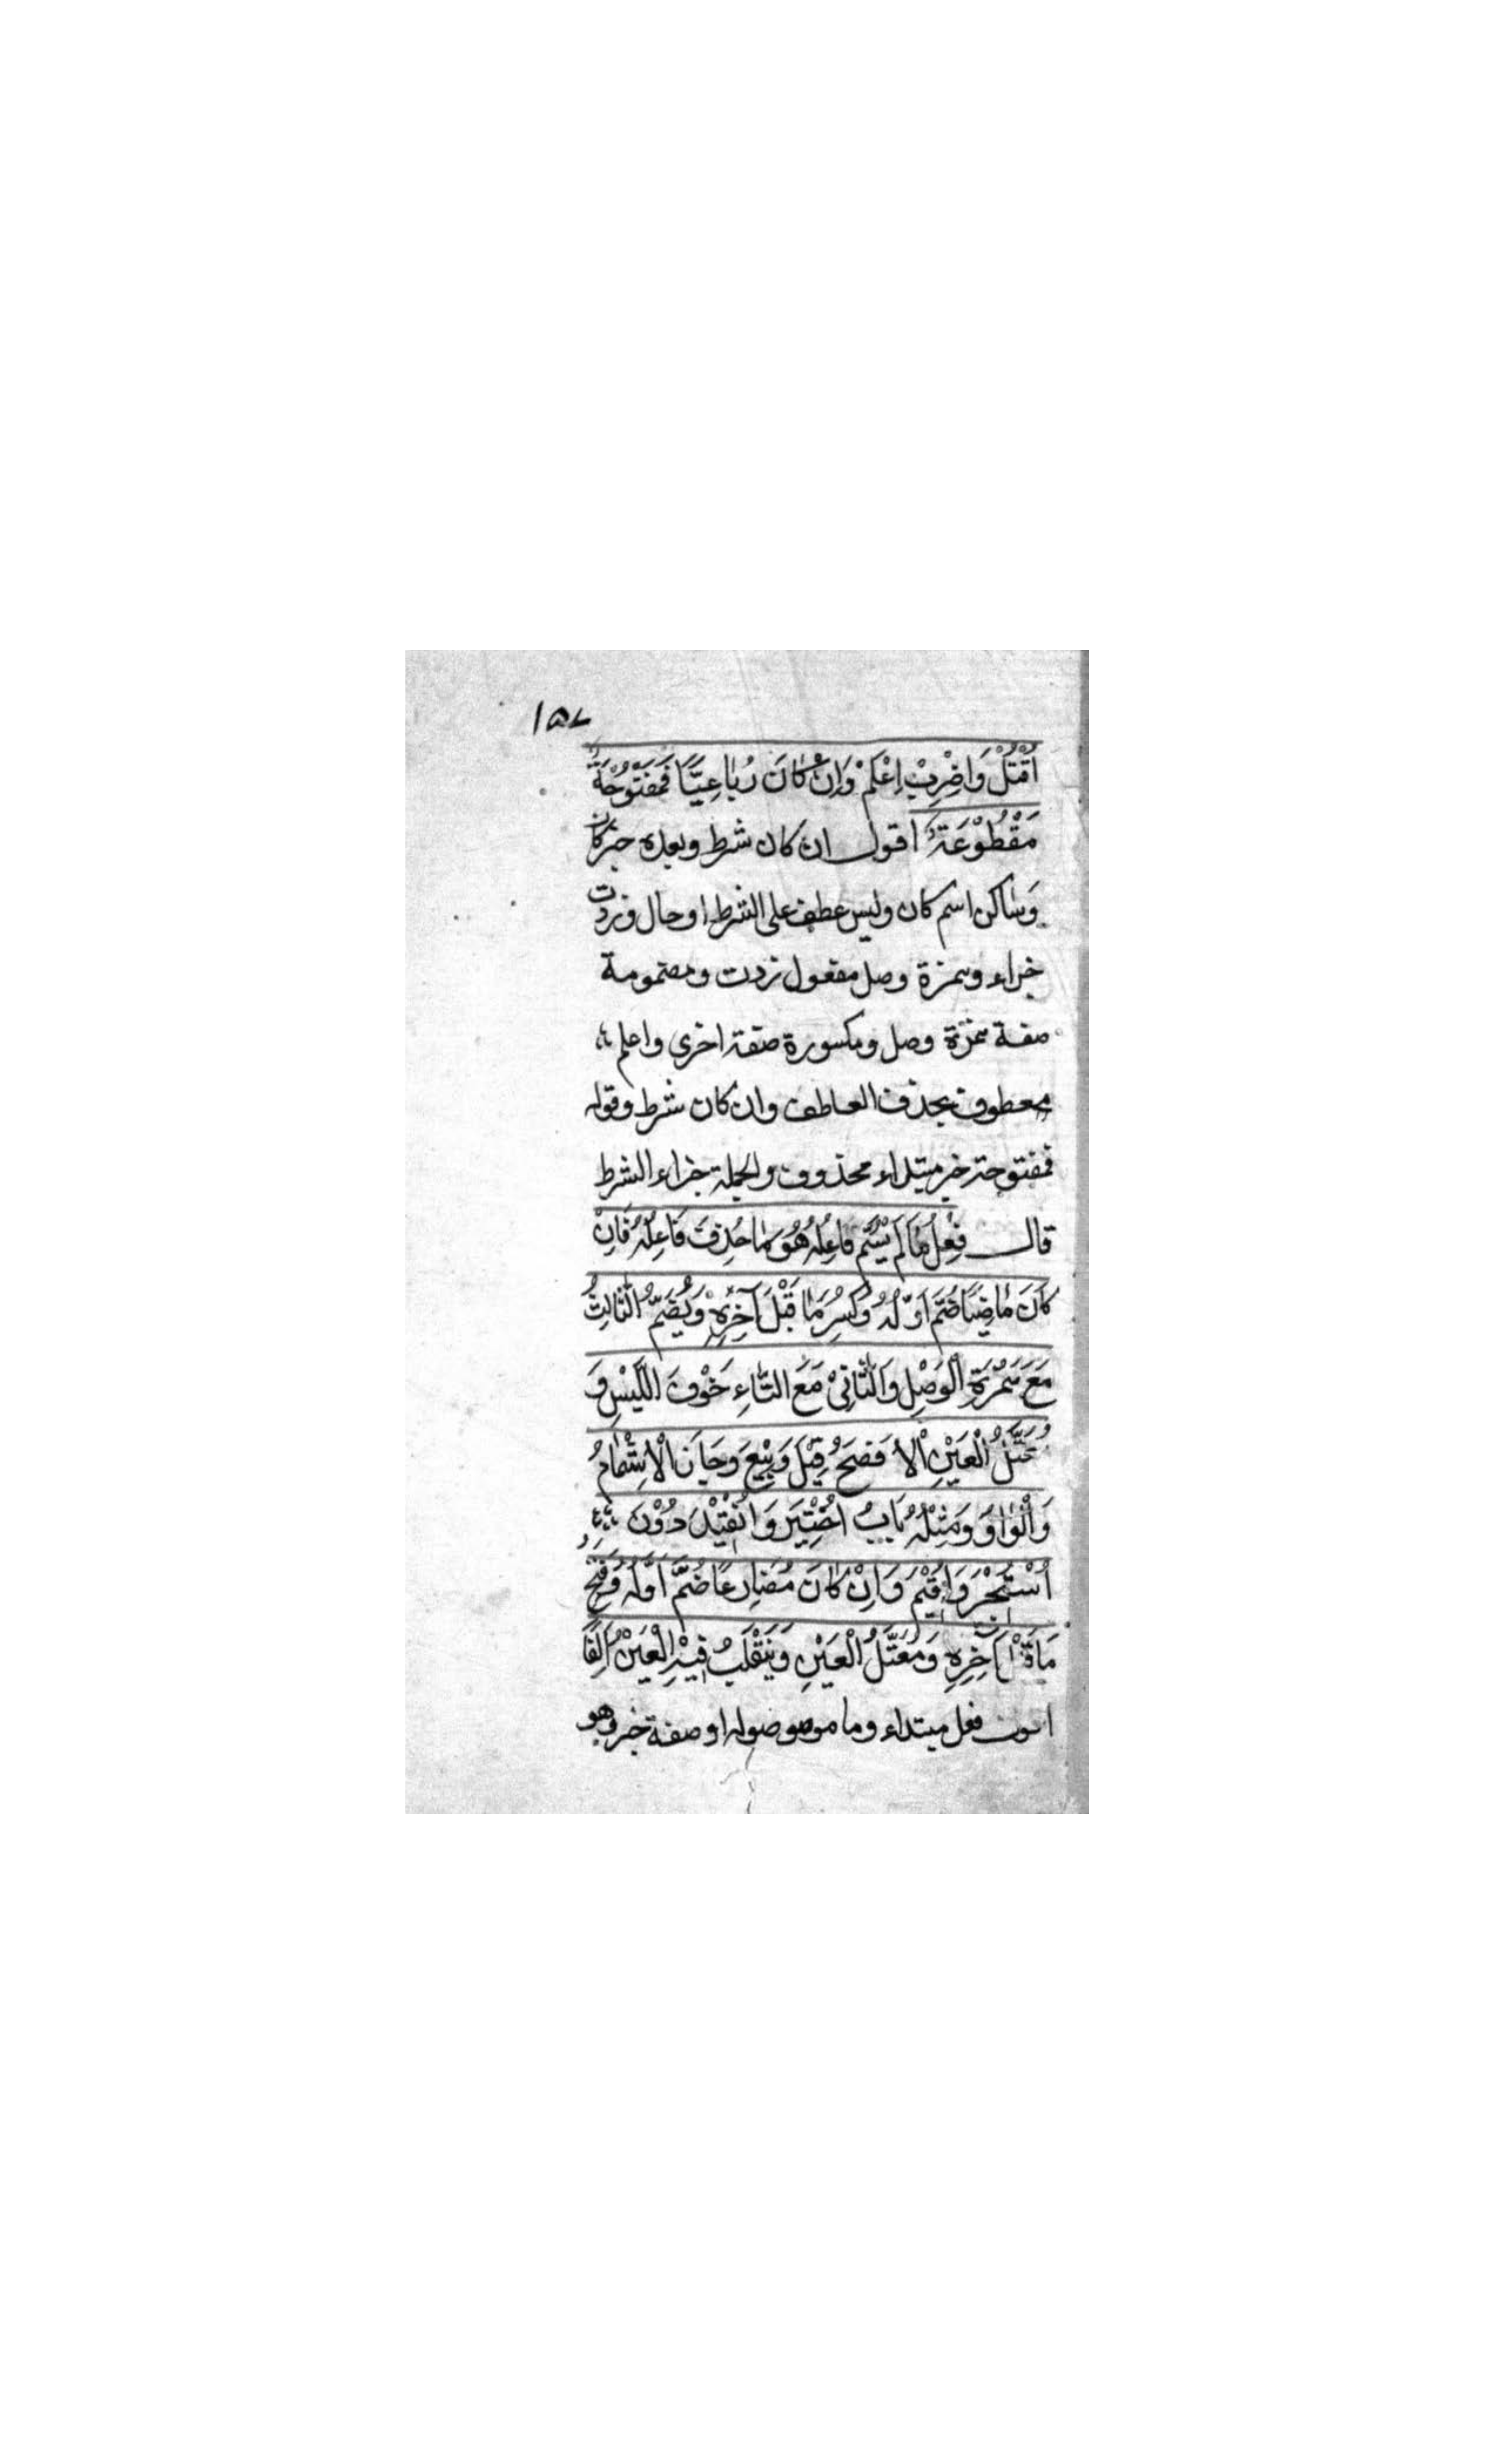 ١٥٧
اُقْتُلْ وَاِضْرِبْ اِعْلَمْ وَاِنْ كَانَ رُبَاعِيًّا فَمَفْتُوْحَةٌ
مَقْطُوْعَةٌ اقول ان كان شرط وبعده خبر كان
وَساكن اسم كان وليس عطف على الشرط او حال وزدت
جزاء وهمزة وصل مفعول زدت ومضمومة
صفة همزة وصل ومكسورة صفة اخرى واعلم
معطوف بحذف العاطف وان كان شرط وقوله
فمفتوحة خبر مبتداء محذوف والجملة جزاء الشرط
قال فِعْلُ مَا لَمْ يُسَمَّ فَاعِلُهُ هُوَ مَا حُذِفَ فَاعِلُهُ فَاِنْ
كَانَ مَاضِيًا ضُمَّ اَوَّلُهُ وَكُسِرَ مَا قَبْلَ آخِرِهِ وَيُضَمُّ الثَّالِثُ
مَعَ هَمْزَةِ الْوَصْلِ وَالثَّانِيْ مَعَ التَّاءِ خَوْفَ اللَّبْسِ وَ
مُعْتَلُّ الْعَيْنِ اَلْاَفْصَحُ قِيْلَ وَبِيْعَ وَجَاءَ الْاِشْمَامُ
وَالْوَاوُ وَمِثْلُهُ بَابُ اُخْتِيْرَ وَانْقِيْدَ دُوْنَ
اُسْتُخِيْرَ وَاُقِيْمَ وَاِنْ كَانَ مُضَارِعًا ضُمَّ اَوَّلُهُ وَفُتِحَ
مَا قَبْلَ آخِرِهِ وَمُعْتَلُّ الْعَيْنِ وَيَنْقَلِبُ فِيْهِ الْعَيْنُ اَلِفًا
اقول فعل مبتداء وما موصوله او صفة خبر وهو